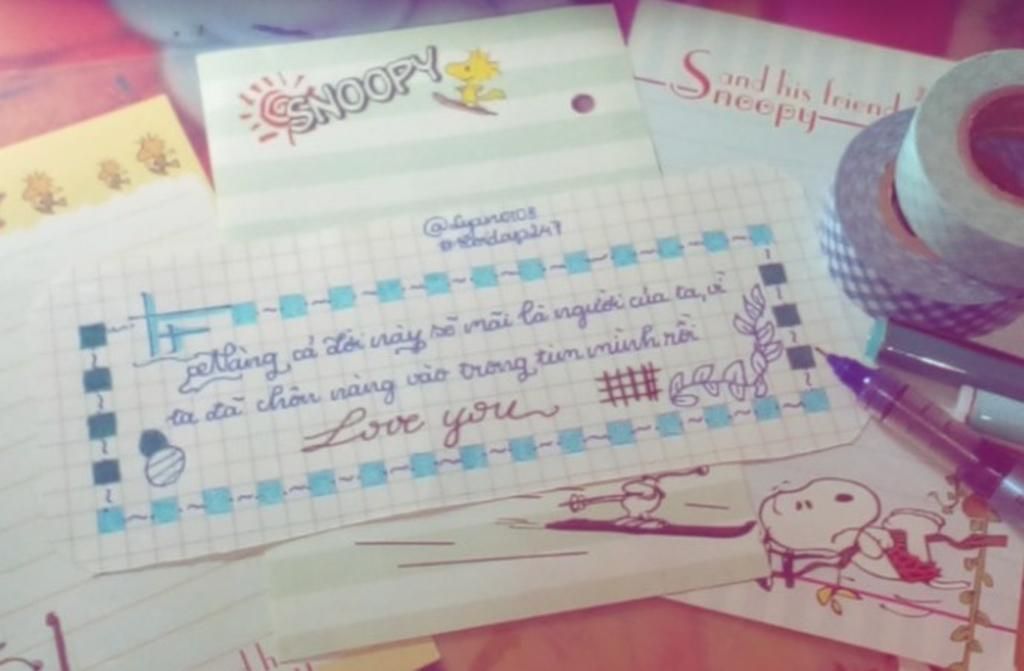 SNOOPY
Snoopy and his friend
Nàng cả đời này sẽ mãi là người của ta, vì
ta đã chôn nàng vào trong tim mình rồi
Love you